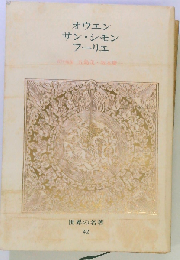 オウエン
サン・シモン
フーリエ
世界の名著
42